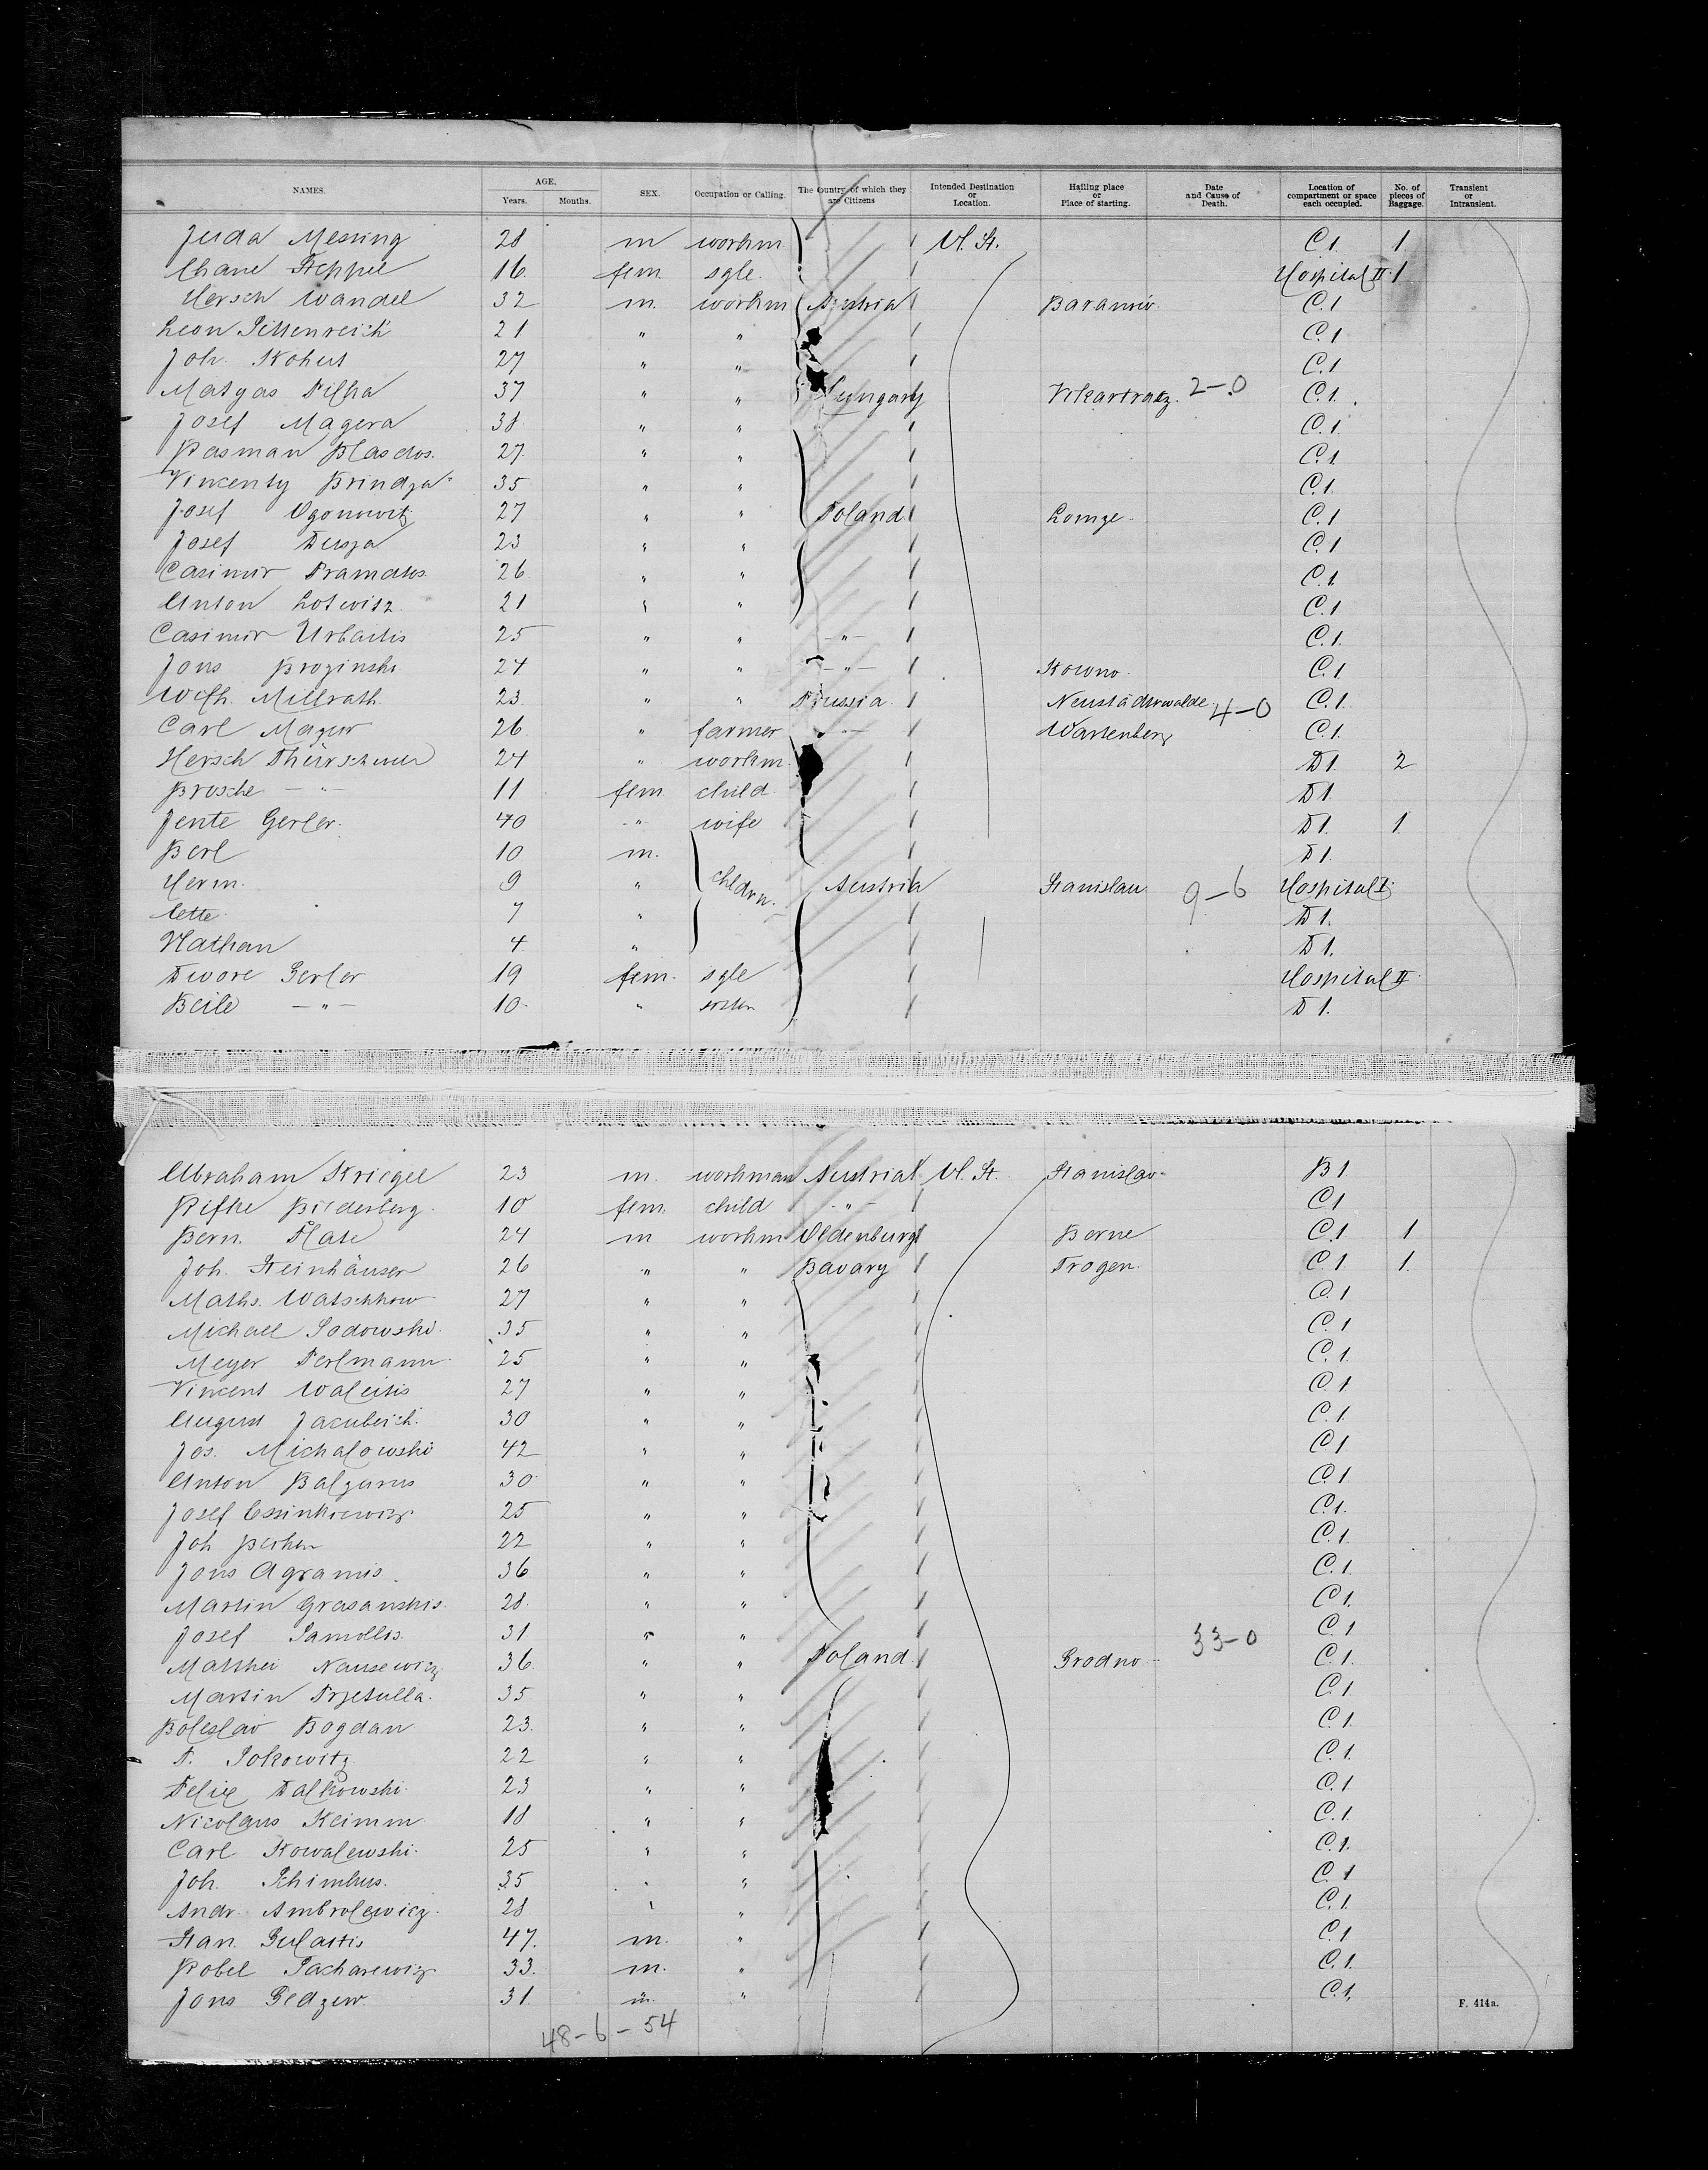 NAMES. AGE. Years. Months. SEX. Occupation or Calling. The Country of which they are Citizens Intended Destination or Location. Hailing place or Place of starting. Date and Cause of Death. Location of compartment or space each occupied. No. of pieces of Baggage. Transient or Intransient.
Juda Messing 28 m workm. U. St. C 1. 1
Chane Steppel 16 fem. sgle. Hospital II. 1
Hersch Wandel 32 m. workm Austria Baranow C. 1
Leon Sittenreich 21 " " C. 1
Joh. Kohut 27 " " C. 1
Matyas Filka 37 " " Hungary 2-0 C. 1.
Josef Magera 38 " " C. 1
Rasman 27. " " C. 1.
Vincenty Brindza 35 " " C. 1.
Josef Ogonowitz 27 " " Poland Lomze C. 1
Josef Dusza 23 " " C. 1
Casimir 26 " " C. 1
Anton Lotwitz 21 " " C. 1
Casimir Urbaitis 25 " " -"- C. 1.
Jons Brozinski 24 " " -"- Kowno C. 1
Wilh. Millrath 23 " " Prussia Neustädterwalde 4-0 C. 1.
Carl Mazur 26 " farmer -"- Wartenberg C. 1.
Hersch 24 " workm. D 1. 2
Brosche -"- 11 fem child D 1.
Jente Gerler. 40 -"- wife D 1. 1.
Berl 10 m. D 1.
Herm. 9 " chldrn. Austria Stanislau 9-6 Hospital I.
Cette 7 " D 1.
Nathan 4 " D 1.
Dwore Gerler 19 fem. sgle Hospital II
Beile -"- 10 " sister D 1.
Abraham Kriegel 23 m. workman Austria U. St. Stanislav B 1.
Rifke Biederberg 10 fem. child -"- C 1
Bern. Plate 24 m workm Oldenburg Berne C. 1 1
Joh. Steinhäuser 26 " " Bavary Trogen C. 1 1.
Maths. Watschkow 27 " " C. 1
Michael Sadowski 35 " " C. 1
Meyer Perlmann 25 " " C. 1.
Vincent Waleitis 27 " " C. 1
August Jacubeich 30 " " C. 1.
Jos. Michalowski 42 " " C 1
Anton Balzunus 30 " " C. 1
Josef 25 " " C. 1.
Joh 22 " " C. 1.
Jons Agramis 36 " " C. 1.
Martin Grasanskis 28 " " C 1.
Josef 31 " " C. 1
Matthei Nausewicz 36 " " Poland Grodno 33-0 C. 1.
Martin Przetulla. 35 " " C. 1.
Boleslav Bogdan 23. " " C. 1.
P. Sokowitz 22 " " C. 1.
Felix Dalkowski 23 " " C. 1
Nicolaus Keimm 18 " " C. 1
Carl Kowalewski 25 " " C. 1.
Joh. Schimkus. 35 " " C. 1
Andr. Ambrolewicz. 28 " " C. 1.
Stan. Gulastis 47. m. " C. 1
Robel Sacharewicz 33. m. " C. 1.
Jons Gedzew 31 m. " C. 1.
F. 414a.
48-6-54